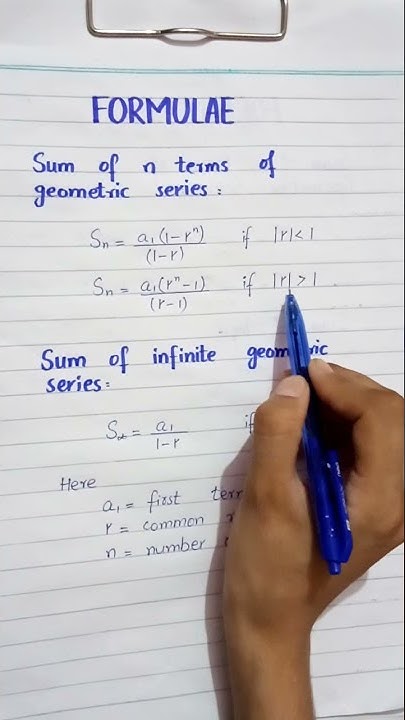 FORMULAE
Sum of n terms of
geometric series:
Sₙ = a₁(1-rⁿ)/(1-r) if |r|<1
Sₙ = a₁(rⁿ-1)/(r-1) if |r|>1
Sum of infinite geometric
series:
S∞ = a₁/1-r if
Here
a₁ = first term
r = common
n = number